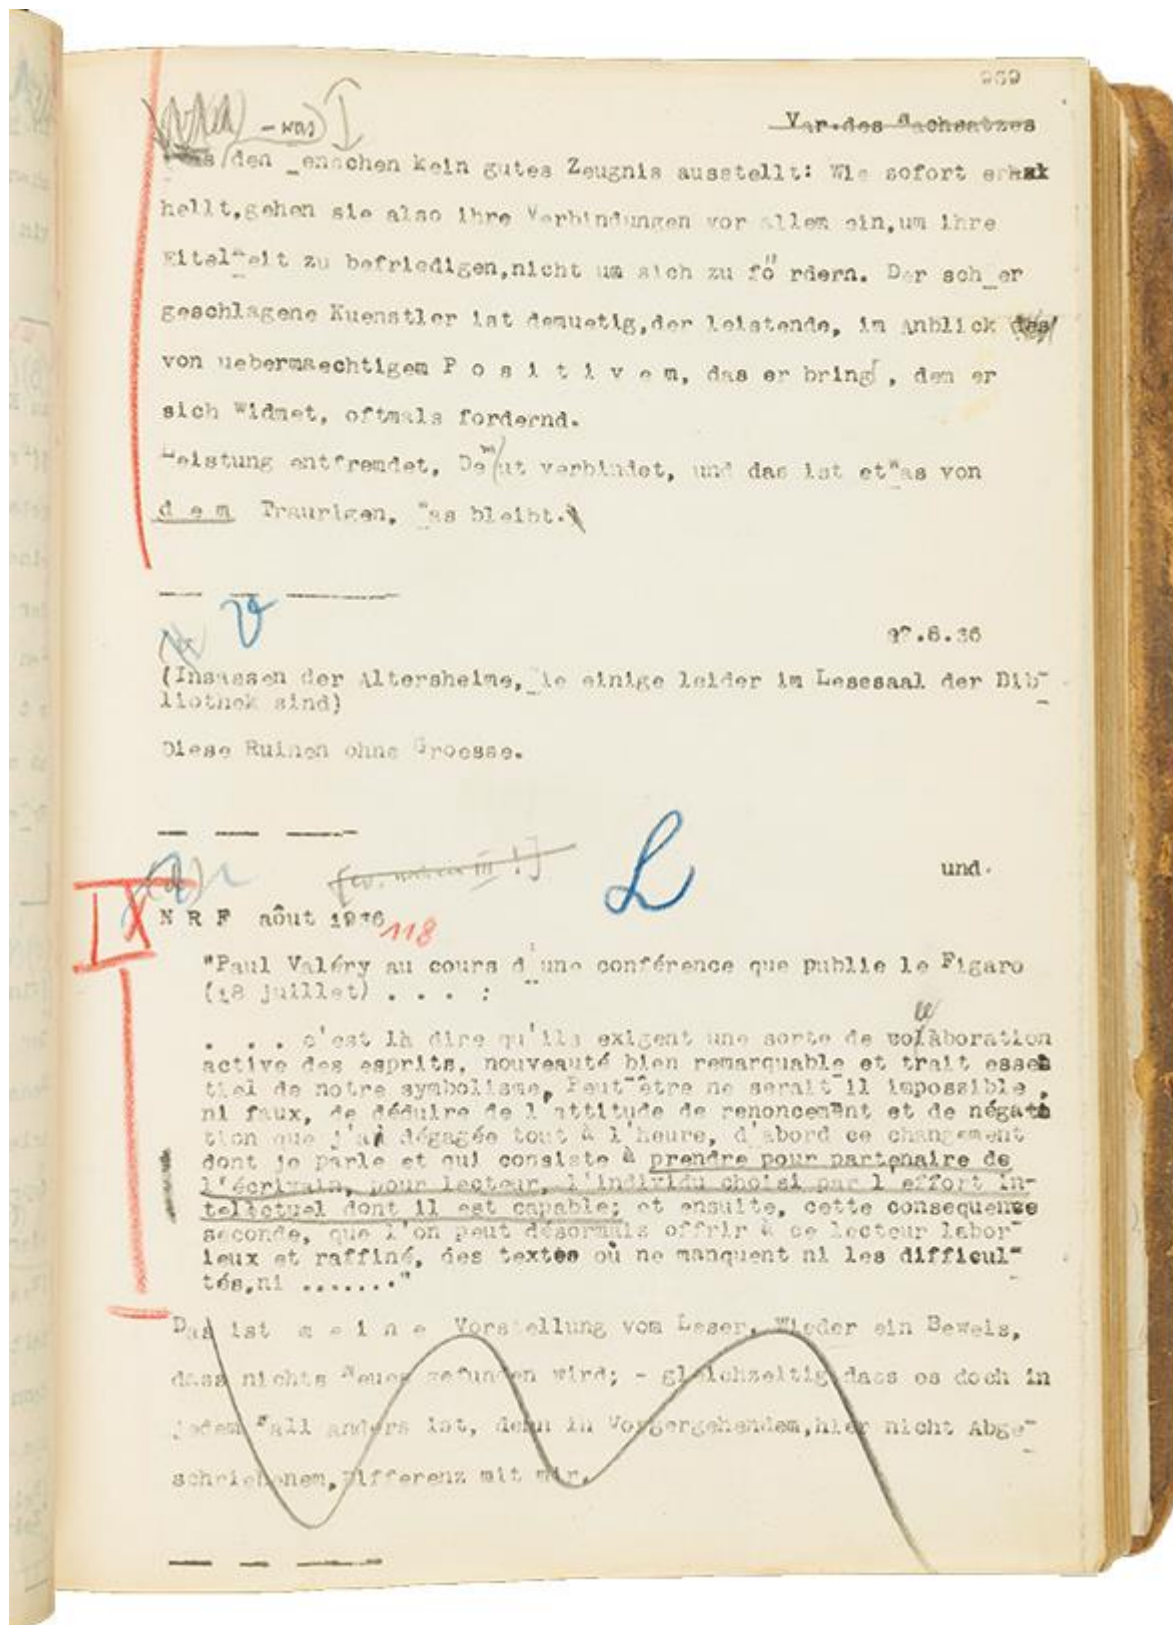 969
Var.des Nachsatzes
- was)
den Menschen kein gutes Zeugnis ausstellt: Wie sofort erhak
hellt,gehen sie also ihre Verbindungen vor allem ein,um ihre
Eitelkeit zu befriedigen,nicht um sich zu fördern. Der schwer
geschlagene Kuenstler ist demuetig,der leistende, im Anblick des
von uebermaechtigem P o s i t i v e m, das er bringt, dem er
sich Widmet, oftmals fordernd.
Leistung entfremdet, Demut verbindet, und das ist etwas von
d e m Traurigen, was bleibt.
V
27.8.36
(Insassen der Altersheime, die einige leider im Lesesaal der Bib-
liothek sind)
Diese Ruinen ohne Groesse.
L
und.
IX
N R F aôut 1936
118
"Paul Valéry au cours d'une conférence que publie le Figaro
(18 juillet) . . . . :
. . . c'est là dire qu'ils exigent une sorte de collaboration
active des esprits, nouveauté bien remarquable et trait essen
tiel de notre symbolisme, Peut-être ne serait-il impossible,
ni faux, de déduire de l'attitude de renoncement et de négati
tion que j'ai dégagée tout à l'heure, d'abord ce changement
dont je parle et qui consiste à prendre pour partenaire de
l'écrivain, pour lecteur, l'individu choisi par l'effort in-
telictuel dont il est capable; et ensuite, cette consequence
seconde, que l'on peut désormais offrir à ce lecteur labor-
ieux et raffiné, des textes où ne manquent ni les difficul-
tés,ni ......."
Das ist m e i n e Vorstellung vom Leser. Wieder ein Beweis,
dass nichts Neues gefunden wird; - gleichzeitig dass es doch in
jedem Fall anders ist, denn in Vorgergehendem,hier nicht Abge-
schriebenem,Differenz mit mir.